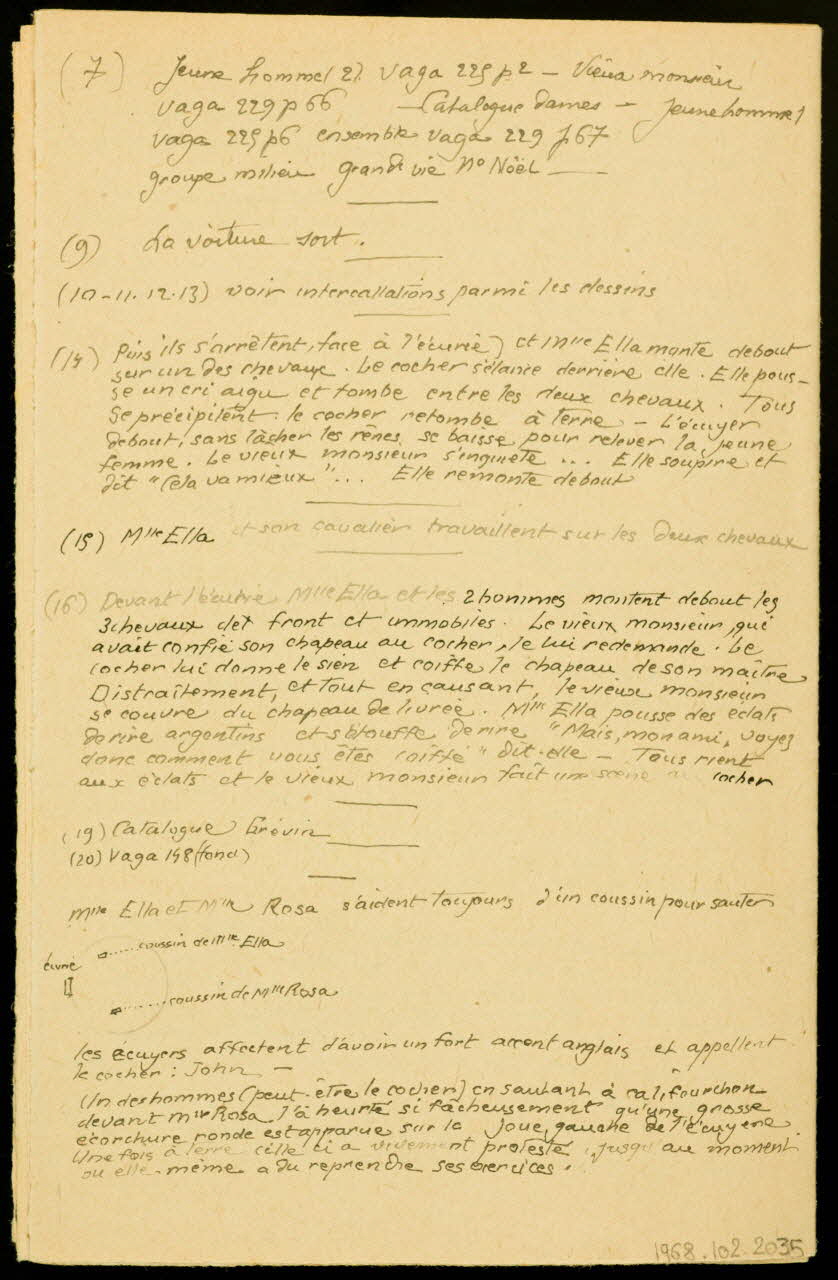 (7) Jeune homme (2) Vaga 229 p2 — Vieux monsieur
Vaga 229 p66 — Catalogue dames — jeune homme 1
Vaga 229 p6 ensemble Vaga 229 p67
groupe milieu Grande vie No Noël —
(9) La voiture sort.
(10-11.12.13) voir intercallations parmi les dessins
(14) Puis ils s'arrêtent, face à l'écurie) et Mlle Ella monte debout
sur un des chevaux. Le cocher s'élance derrière elle. Elle pous-
se un cri aigu et tombe entre les deux chevaux. Tous
se précipitent. le cocher retombe à terre — L'écuyer
debout, sans lâcher les rênes, se baisse pour relever la jeune
femme. Le vieux monsieur s'inquiète... Elle soupire et
dit "Cela va mieux"... Elle remonte debout
(15) Mlle Ella et son cavalier travaillent sur les deux chevaux
(16) Devant l'écurie Mlle Ella et les 2 hommes montent debout les
3 chevaux de front et immobiles. Le vieux monsieur, qui
avait confié son chapeau au cocher, le lui redemande. Le
cocher lui donne le sien et coiffe le chapeau de son maître
Distraîtement, et tout en causant, le vieux monsieur
se couvre du chapeau de livrée. Mlle Ella pousse des éclats
de rire argentins et s'étouffe de rire "Mais, mon ami, voyez
donc comment vous êtes coiffé" dit-elle — Tous rient
aux éclats et le vieux monsieur fait une scène au cocher
(19) Catalogue Grévin
(20) Vaga 148 (fond)
Mlle Ella et Mlle Rosa s'aident toujours d'un coussin pour sauter
coussin de Mlle Ella
écurie
coussin de Mlle Rosa
les écuyers affectent d'avoir un fort accent anglais et appellent
le cocher : John —
Un des hommes (peut-être le cocher) en sautant à califourchon
devant Mlle Rosa l'a heurté si fâcheusement qu'une grosse
écorchure ronde est apparue sur la joue gauche de l'écuyère
Une fois à terre celle ci a vivement protesté, jusqu'au moment
ou elle-même a du reprendre ses exercices.
1968.102.2035